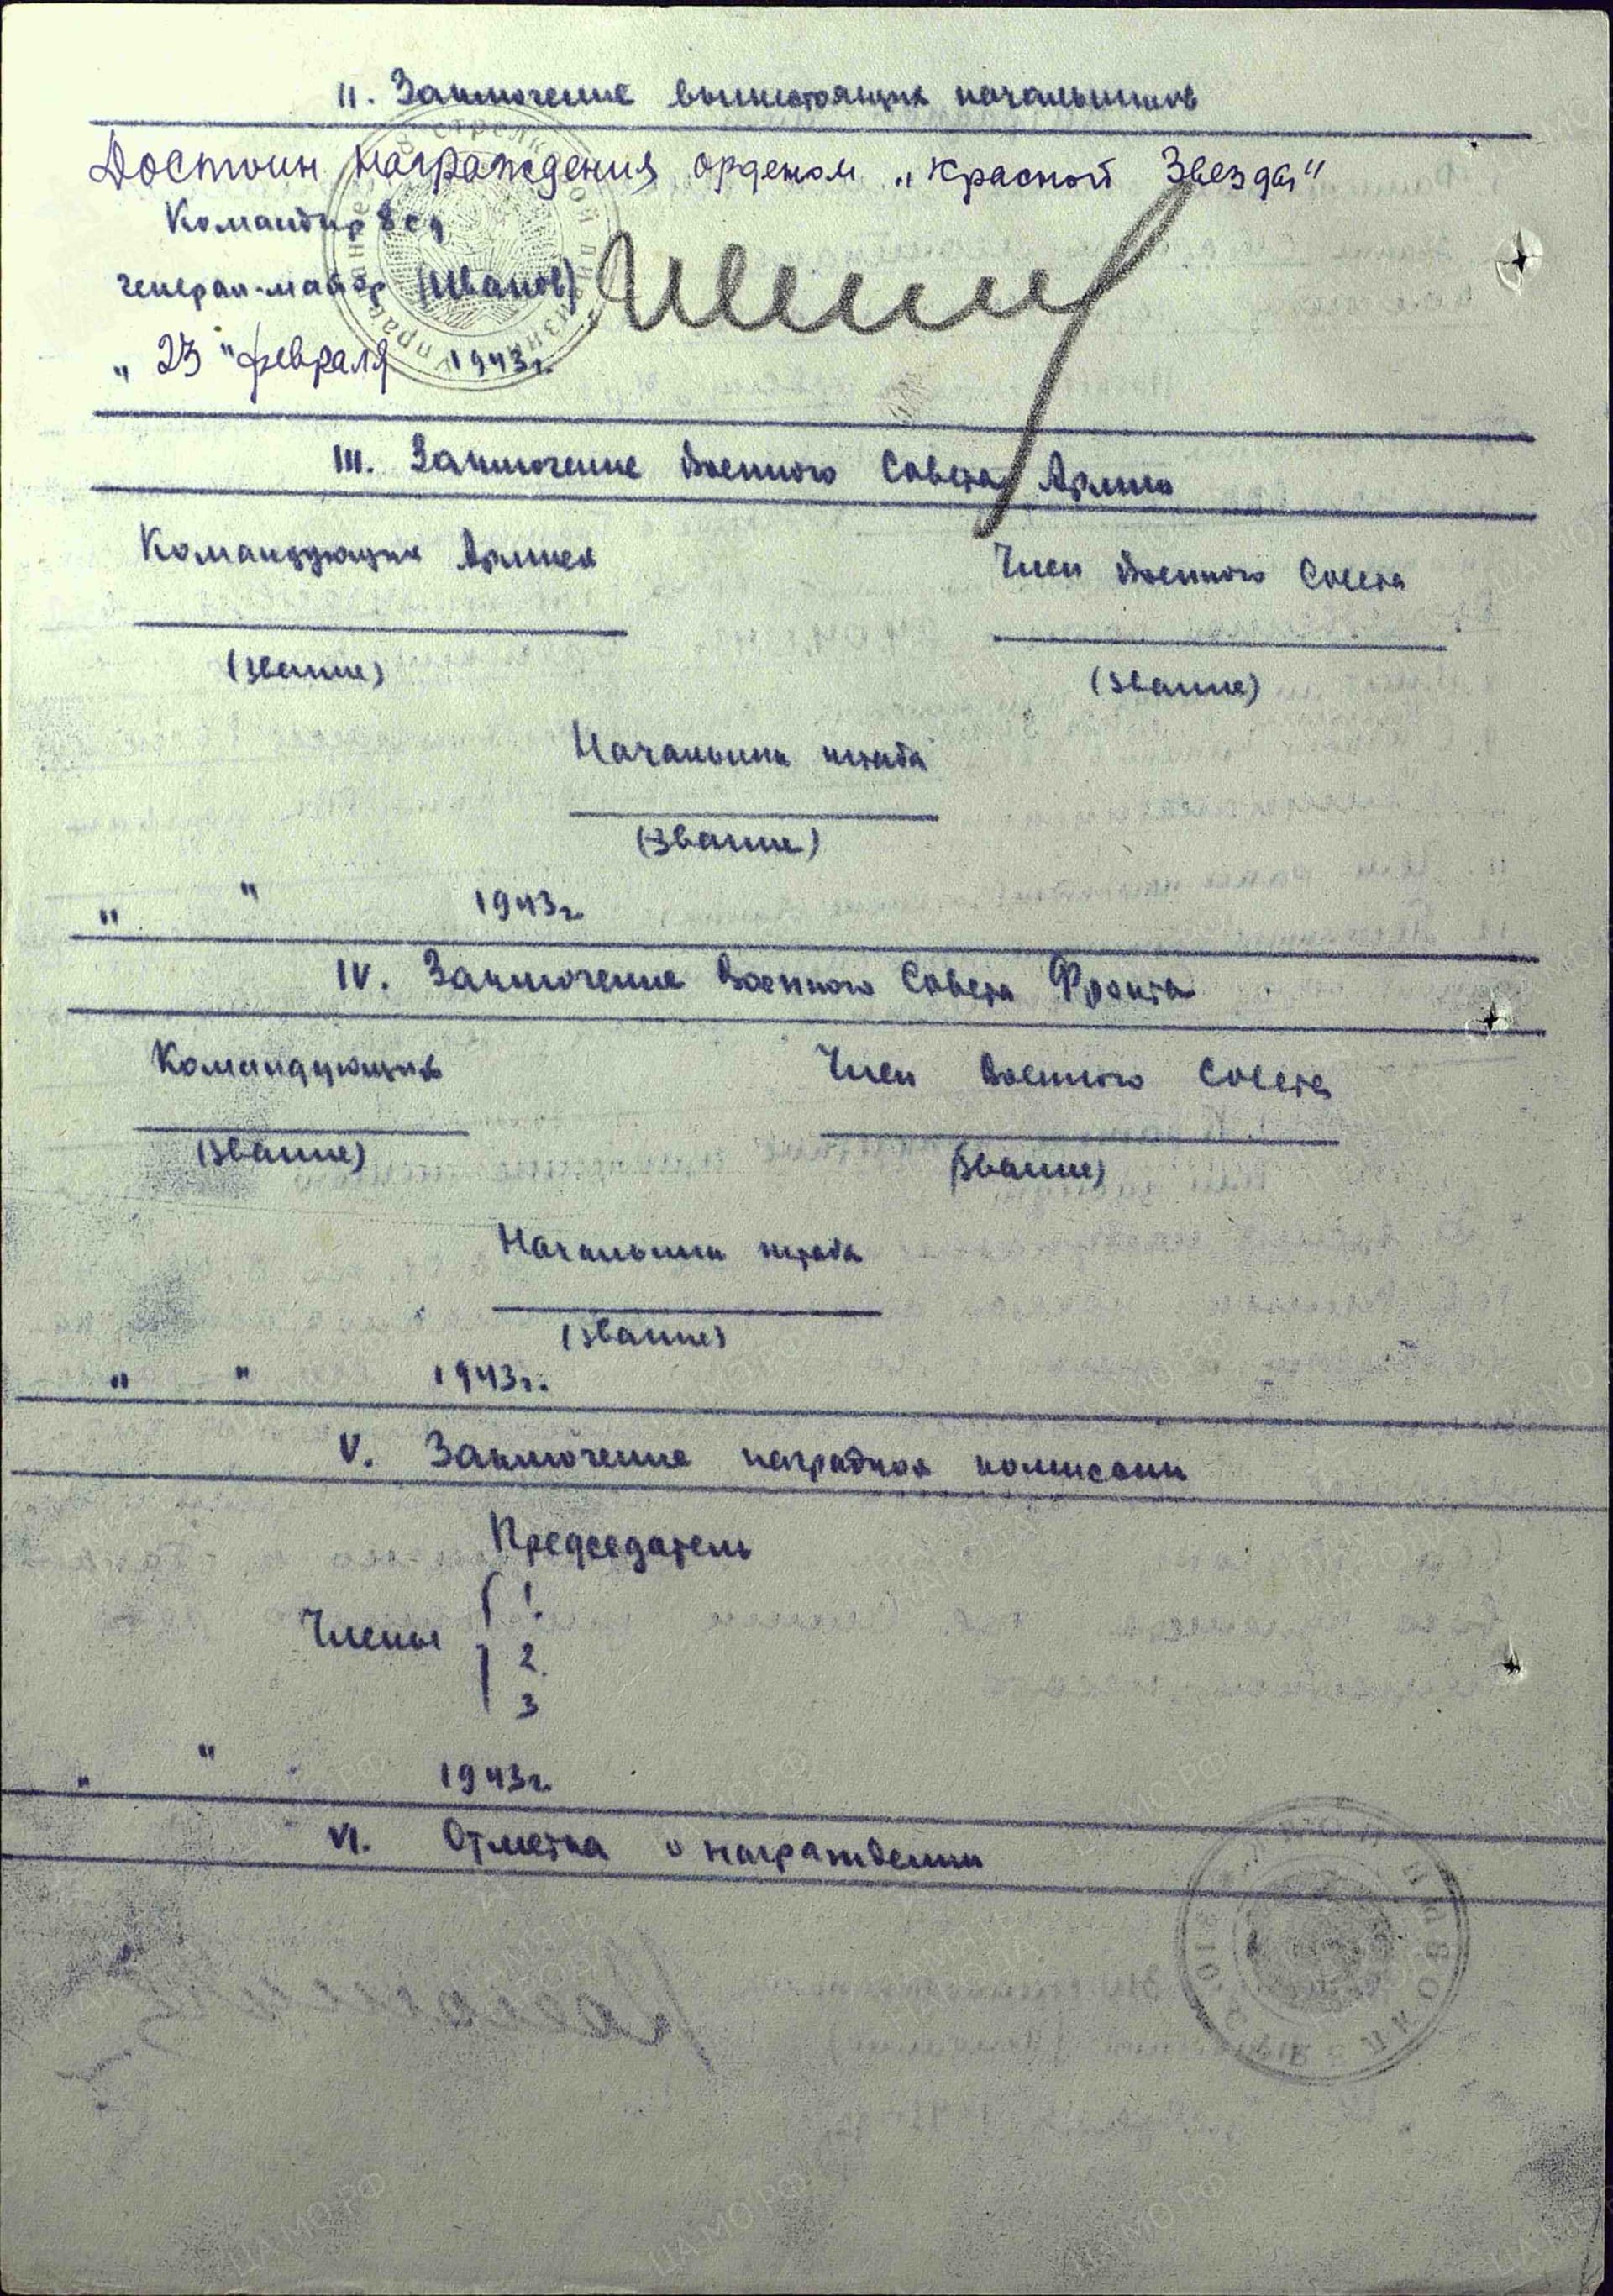 II. Заключение вышестоящих начальников
Достоин награждения орденом „Красной Звезда"
Командир 8 сд
генерал-майор (Иванов)
„ 23 " февраля 1943г.
III. Заключение Военного Совета Армии
Командующий Армией Член Военного Совета
(звание) (звание)
Начальник штаба
(звание)
„ " 1943г.
IV. Заключение Военного Совета Фронта
Командующий Член Военного Совета
(звание) (звание)
Начальник штаба
(звание)
„ " 1943г.
V. Заключение наградной комиссии
Председатель
Члены
1.
2.
3
„ " 1943г.
VI. Отметка о награждении
ЦА МО РФ